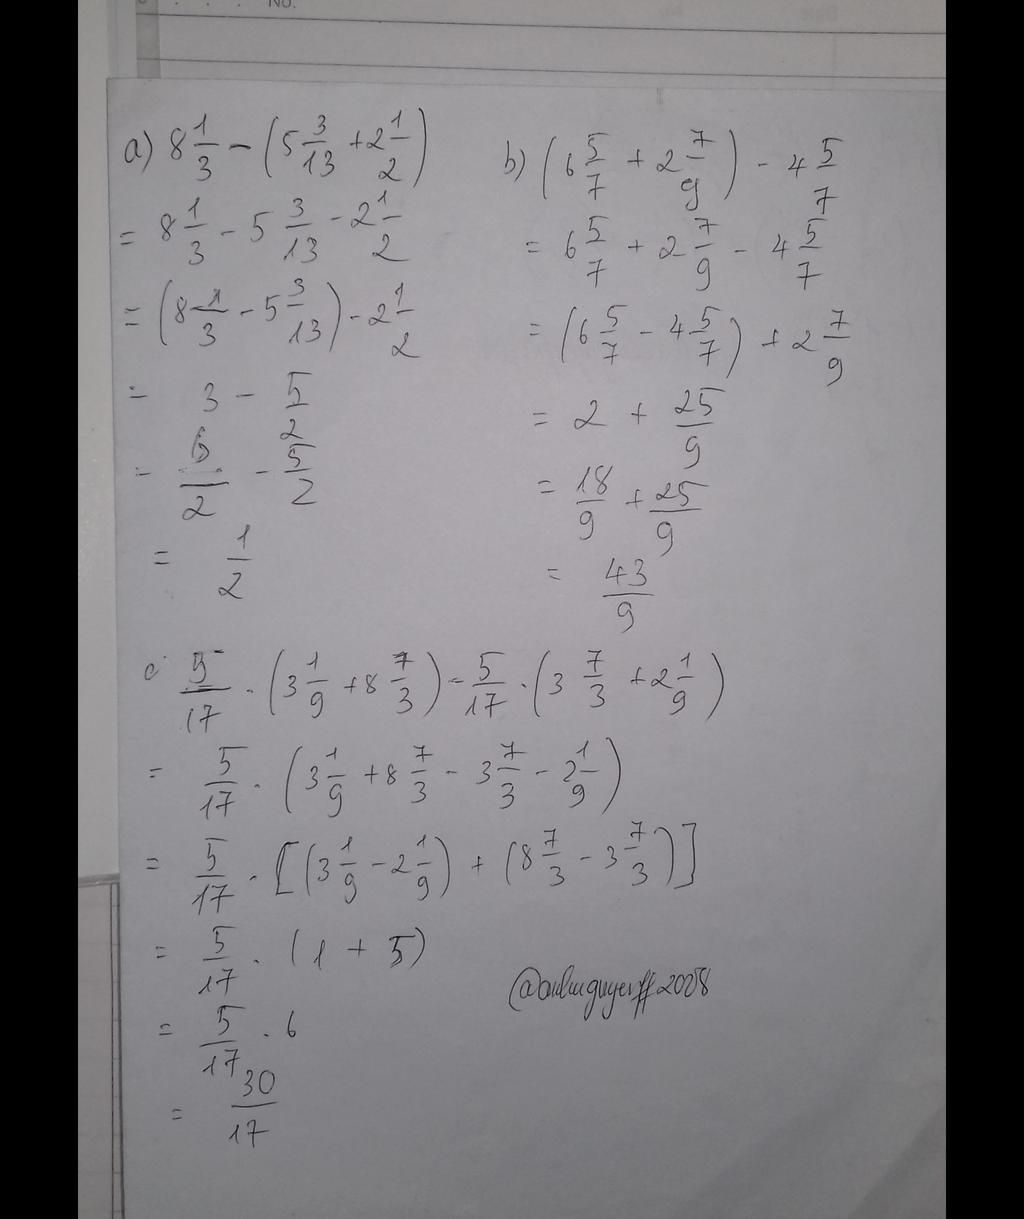 No.
a) 8 1/3 - (5 3/13 + 2 1/2)
= 8 1/3 - 5 3/13 - 2 1/2
= (8 1/3 - 5 3/13) - 2 1/2
= 3 - 5/2
= 6/2 - 5/2
= 1/2
b) (6 5/7 + 2 7/9) - 4 5/7
= 6 5/7 + 2 7/9 - 4 5/7
= (6 5/7 - 4 5/7) + 2 7/9
= 2 + 25/9
= 18/9 + 25/9
= 43/9
c 5/17 . (3 1/9 + 8 7/3) - 5/17 . (3 7/3 + 2 1/9)
= 5/17 . (3 1/9 + 8 7/3 - 3 7/3 - 2 1/9)
= 5/17 . [(3 1/9 - 2 1/9) + (8 7/3 - 3 7/3)]
= 5/17 . (1 + 5)
= 5/17 . 6
= 30/17